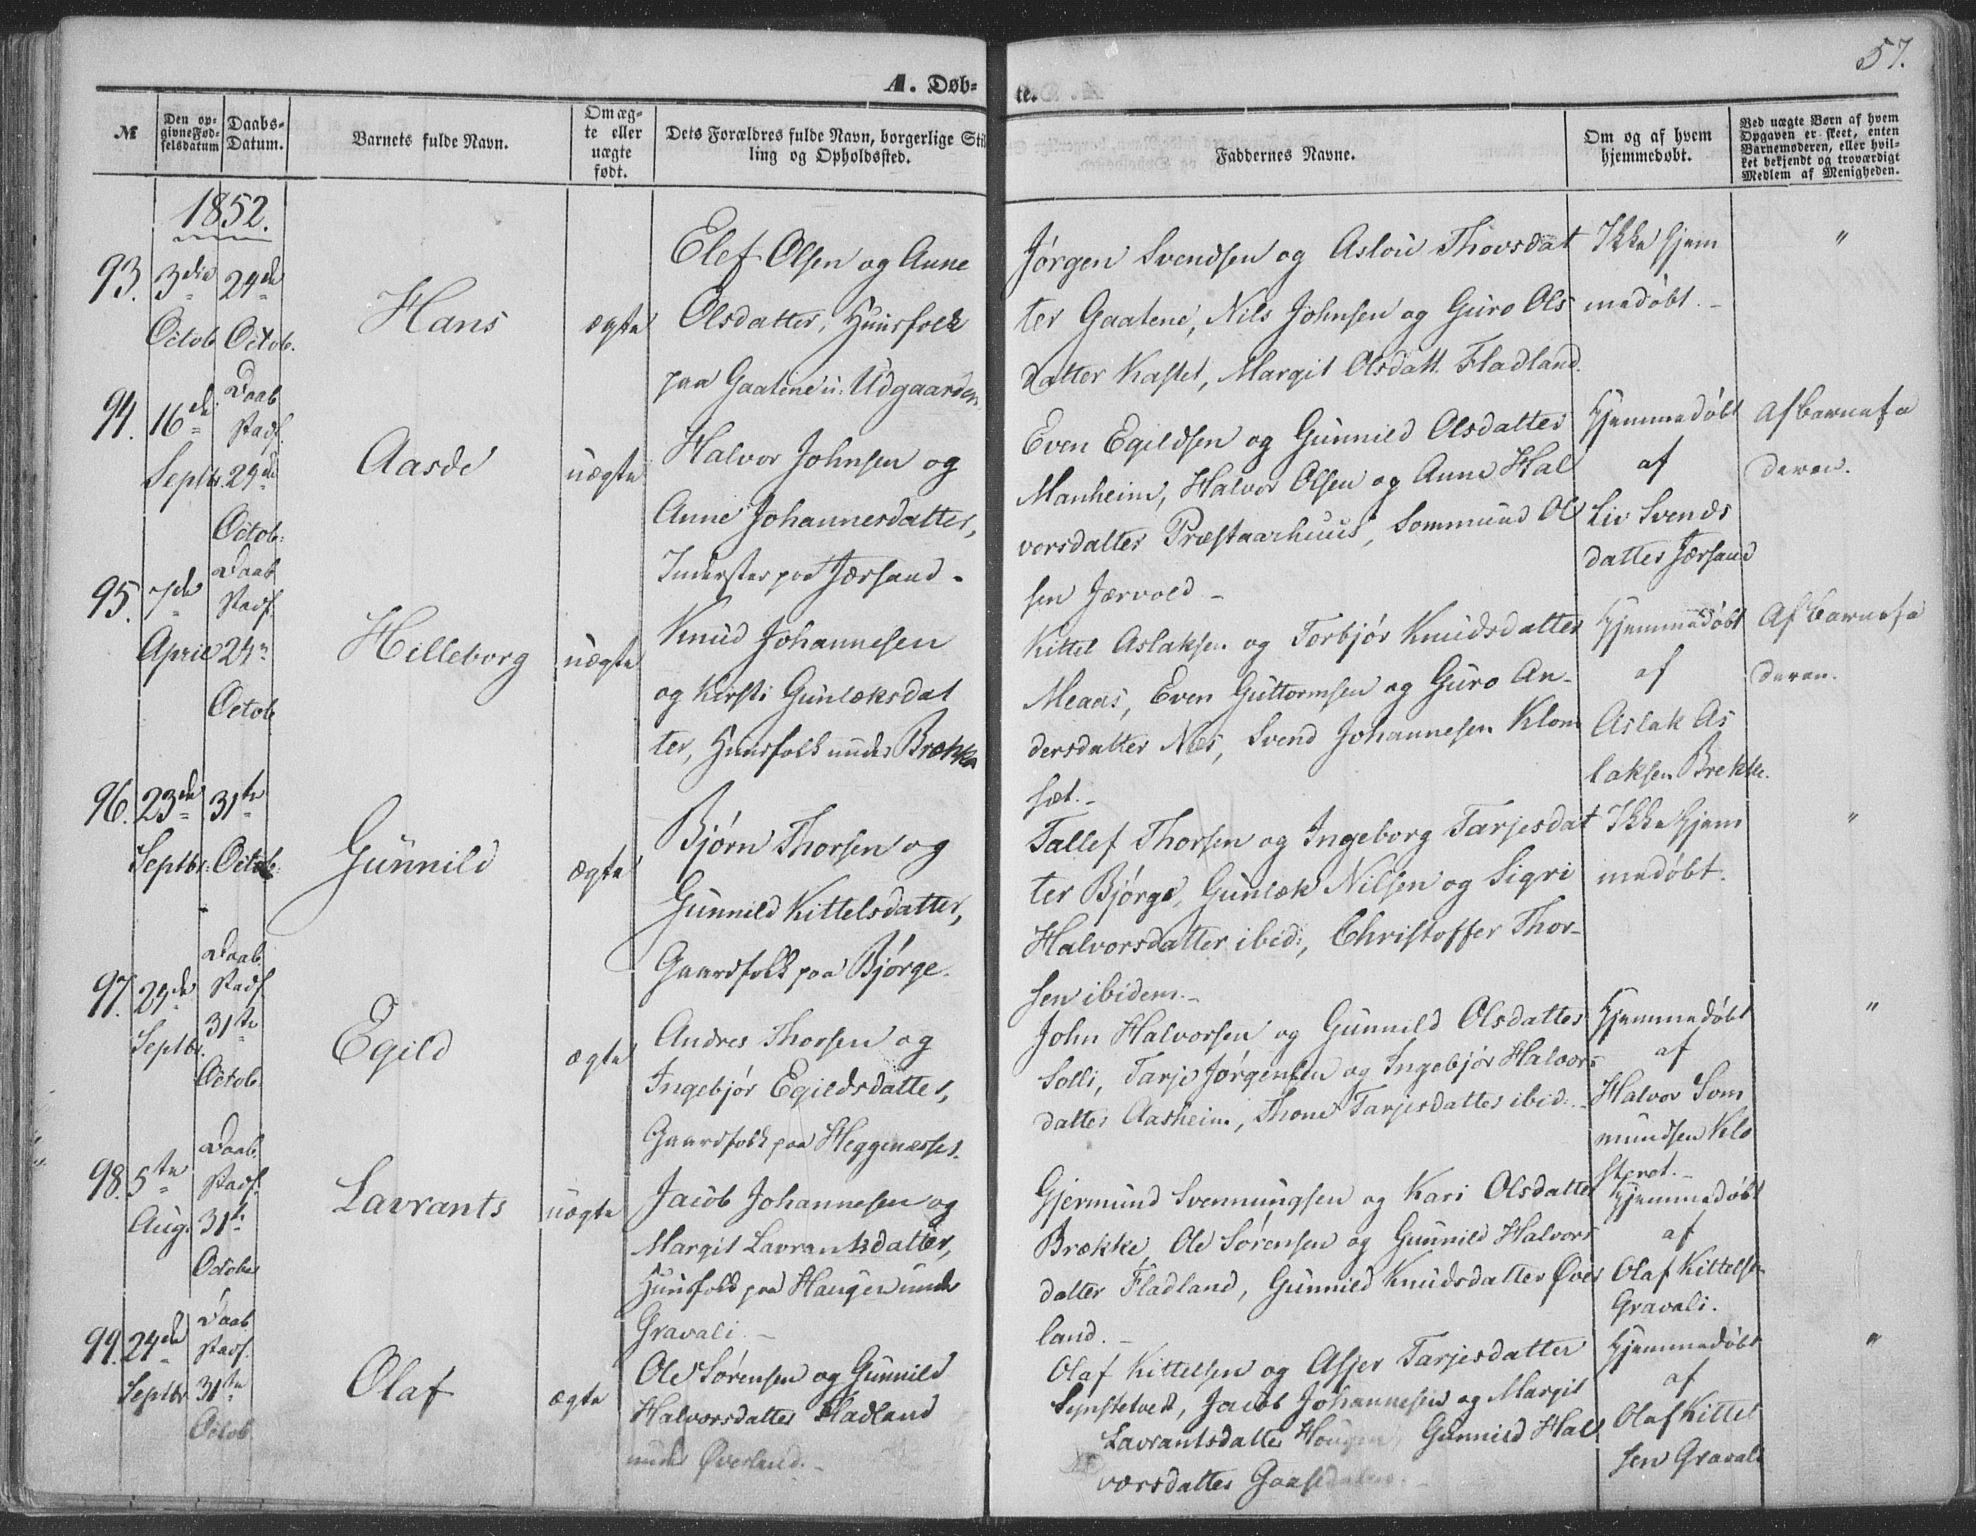 57.
A. Døb-
te.
№
Den op-
givne Fød-
selsdatum
Daabs-
Datum.
Barnets fulde Navn.
Om æg-
te eller
uægte
født.
Dets Forældres fulde Navn, borgerlige Stil-
ling og Opholdssted.
Faddernes Navne.
Om og af hvem
hjemmedøbt.
Ved uægte Børn af hvem
Opgaven er skeet, enten
Barnemoderen, eller hvil-
ket bekjendt og troværdigt
Medlem af Menigheden.
1852.
93.
3die
Octob
24de
Octob.
Hans
ægte
Elef Olsen og Anne
Olsdatter, Huusfolk
paa Gaatene u: Udgaarden
Jørgen Svendsen og Aslou Thovsdat
ter Gaatene, Nils Johnsen og Guro Ols
datter Kastet, Margit Olsdatt. Fladland.
Ikke hjem
medøbt. -
"
94.
16de
Septbr.
Daab
Stadf.
29de
Octob.
Aasde
uægte
Halvor Johnsen og
Anne Johannesdatter,
Inderster paa Jærsand.
Even Egildsen og Gunnild Olsdatter
Manheim, Halvor Olsen og Anne Hal
vorsdatter Præstaarhuus, Sommund Ol
sen Jærvold -
Hjemmedøbt
af
Liv Svends
datter Jærsand
Af Barnefa
deren.
95.
7de
April
Daab
Stadf.
24n
Octob
Hilleborg
uægte
Knud Johannesen
og Kirsti Gunlæksdat
ter, Huusfolk under Brække
Kittel Aslaksen og Torbjør Knudsdatter
Meaas, Even Guttormsen og Guro An-
dersdatter Næs, Svend Johannesen Klom
sæt. -
Hjemmedøbt
af
Aslak As
laksen Brekke.
Af Barnefa
deren.
96.
23de
Septbr.
31te
Octob.
Gunnild
ægte
Bjørn Thorsen og
Gunnild Kittelsdatter,
Gaardfolk paa Bjørge.
Tallef Thorsen og Ingeborg Tarjesdat
ter Bjørge, Gunlæk Nilsen og Sigri
Halvorsdatter ibid:, Christoffer Thor-
sen ibidem. -
Ikke hjem
medøbt.
"
97.
29de
Septbr.
Daab.
Stadf
31te
Octob.
Egild
ægte
Andres Thorsen og
Ingebjør Egildsdatter,
Gaardfolk paa Heggenæsset.
John Halvorsen og Gunnild Olsdatter
Solli, Tarje Jørgensen og Ingebjør Halvors
datter Aasheim, Thone Tarjesdatter ibid: -
Hjemmedøbt
af
Halvor Som
mundsen Klo
steret. -
"
98.
5te
Aug.
Daab.
Stadf.
31te
October
Lavrants
uægte
Jacob Johannesen og
Margit Lavrantsdatter,
Huusfolk paa Haugen under
Gravali. -
Gjermund Svennungsen og Kari Olsdatter
Brække, Ole Sørensen og Gunnild Halvors
datter Fladland, Gunnild Knudsdatter Øver
land. -
Hjemmedøbt
af
Olaf Kittelsen
Gravali.
99.
24de
Septbr
Daab
Stadf.
31te
Octob
Olaf
ægte
Ole Sørensen og Gunnild
Halvorsdatter Fladland
under Øverland. -
Olaf Kittelsen og Asjer Tarjesdatter
Synstetvedt, Jacob Johannesen og Margit
Lavrantsdatter Haugen, Gunnild Hal
vorsdatter
Hjemmedøbt
af
Olaf Kittel
sen Gravali
"